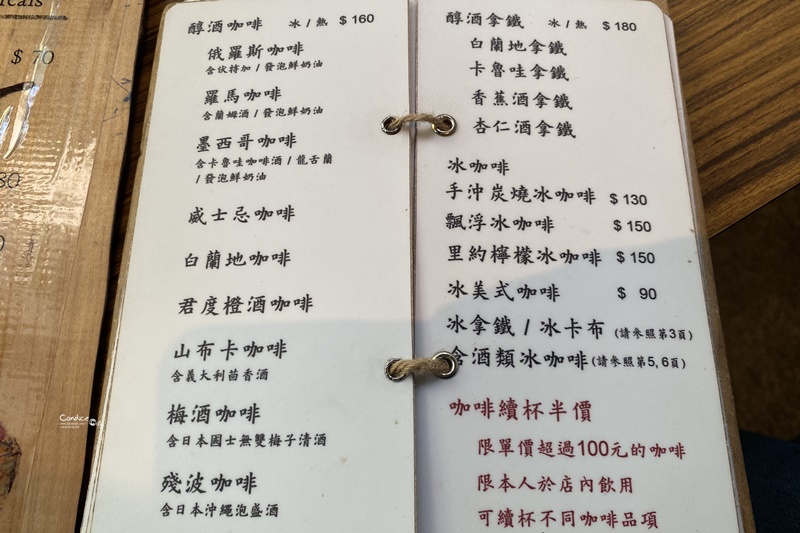 icals
$ 70
80
0
醇酒咖啡 冰/熱 $160
俄羅斯咖啡
含伏特加/發泡鮮奶油
羅馬咖啡
含蘭姆酒/發泡鮮奶油
墨西哥咖啡
含卡魯哇咖啡酒/龍舌蘭
/發泡鮮奶油
威士忌咖啡
白蘭地咖啡
君度橙酒咖啡
山布卡咖啡
含義大利茴香酒
梅酒咖啡
含日本國士無雙梅子清酒
殘波咖啡
含日本沖繩泡盛酒
醇酒拿鐵 冰/熱 $180
白蘭地拿鐵
卡魯哇拿鐵
香蕉酒拿鐵
杏仁酒拿鐵
冰咖啡
手沖炭燒冰咖啡 $130
飄浮冰咖啡 $150
里約檸檬冰咖啡 $150
冰美式咖啡 $ 90
冰拿鐵/冰卡布 (請參照第3頁)
含酒類冰咖啡(請參照第5,6頁)
咖啡續杯半價
限單價超過100元的咖啡
限本人於店內飲用
可續杯不同咖啡品項
Candice